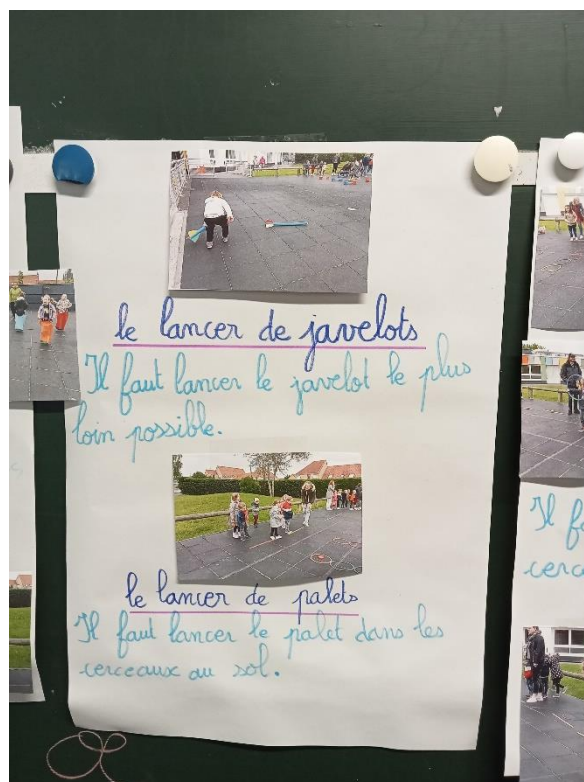 le lancer de javelots
Il faut lancer le javelot le plus
loin possible.
le lancer de palets
Il faut lancer le palet dans les
cerceaux au sol.
Il f
cerc